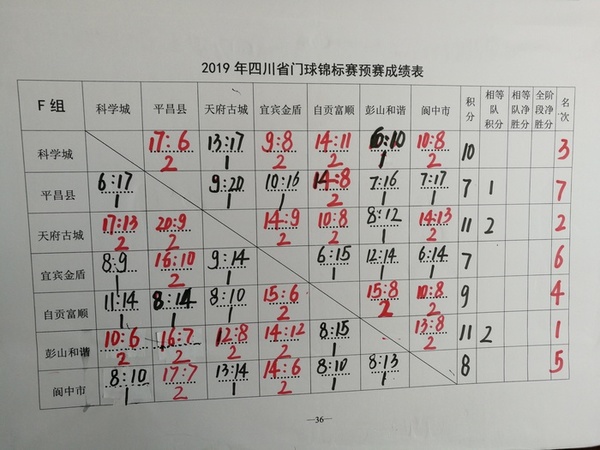 2019 年四川省门球锦标赛预赛成绩表
F 组 科学城 平昌县 天府古城 宜宾金盾 自贡富顺 彭山和谐 阆中市 积分 相等队积分 相等队净胜分 全阶段净胜分 名次
科学城 17:6 13:17 9:8 14:11 6:10 10:8 10 3
2 1 2 2 1 2
平昌县 6:17 9:20 10:16 14:8 7:16 7:17 7 1 7
1 1 1 2 1 1
天府古城 17:13 20:9 14:9 10:8 8:12 14:13 11 2 2
2 2 2 2 1 2
宜宾金盾 8:9 16:10 9:14 6:15 12:14 6:14 7 6
1 2 1 1 1 1
自贡富顺 11:14 8:14 8:10 15:6 15:8 10:8 9 4
1 1 1 2 2 2
彭山和谐 10:6 16:7 12:8 14:12 8:15 13:8 11 2 1
2 2 2 2 1 2
阆中市 8:10 17:7 13:14 14:6 8:10 8:13 8 5
1 2 1 2 1 1
—36—